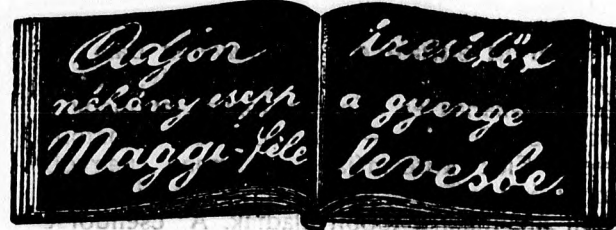 Adjon
néhány csepp
Maggi-féle
ízesítőt
a gyenge
levesbe.